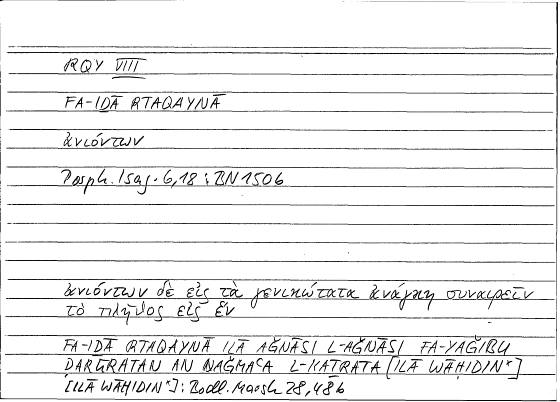 RQY VIII
FA-IḎĀ RTAQAYNĀ
ἀνιόντων
Porph. Isag. 6,18 : BN 150b
ἀνιόντων δὲ εἰς τὰ γενικώτατα ἀνάγκη συναιρεῖν
τὸ πλῆθος εἰς ἕν
FA-IḎĀ RTAQAYNĀ ILĀ AǦNĀSI L-AǦNĀSI FA-YAǦIBU
ḌARŪRATAN AN NAǦMAʿA L-KAṮRATA [ILĀ WĀḤIDIN*]
[ILĀ WĀḤIDIN*]: Bodl. Marsh 28, 48b